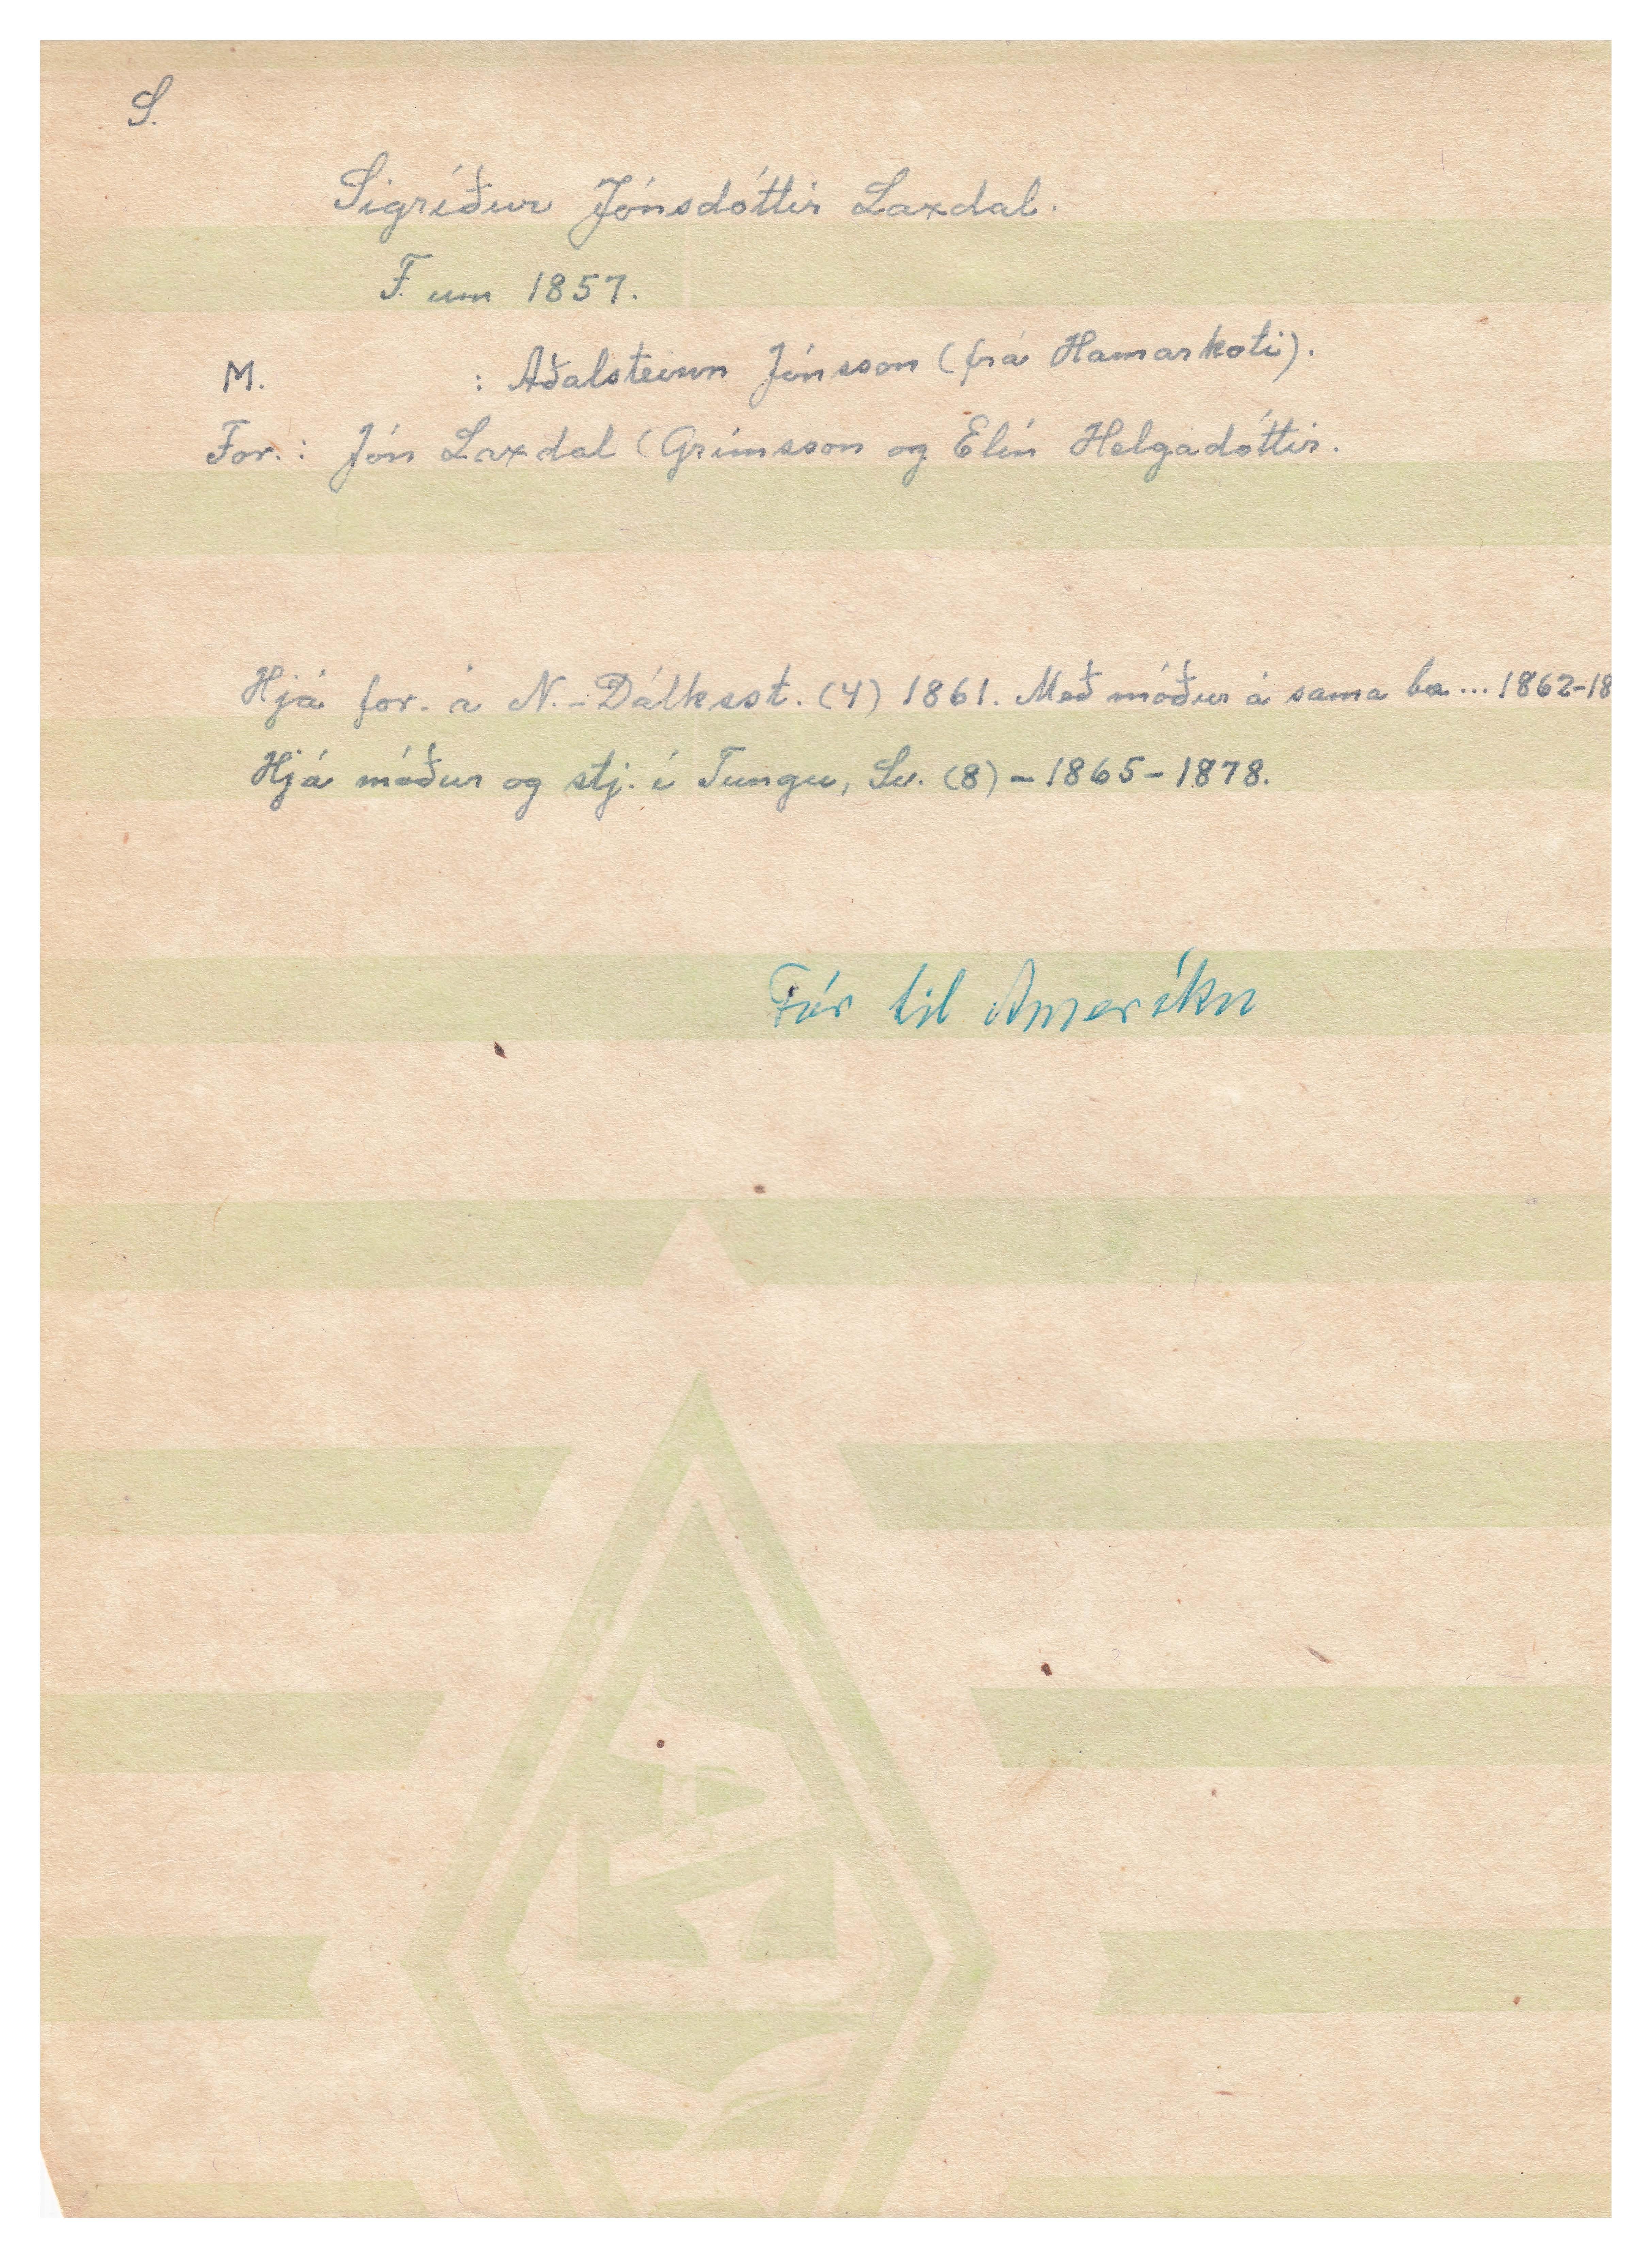 S.
Sigríður Jónsdóttir Laxdal.
F. um 1857.
M. : Aðalsteinn Jónsson (frá Hamarkoti).
For.: Jón Laxdal (Grímsson og Elín Helgadóttir.
Hjá for. á N.-Dálksst. (4) 1861. Með móður á sama bæ... 1862-18
Hjá móður og stj. í Tungu, Sv. (8) - 1865-1878.
Fór til Ameríku